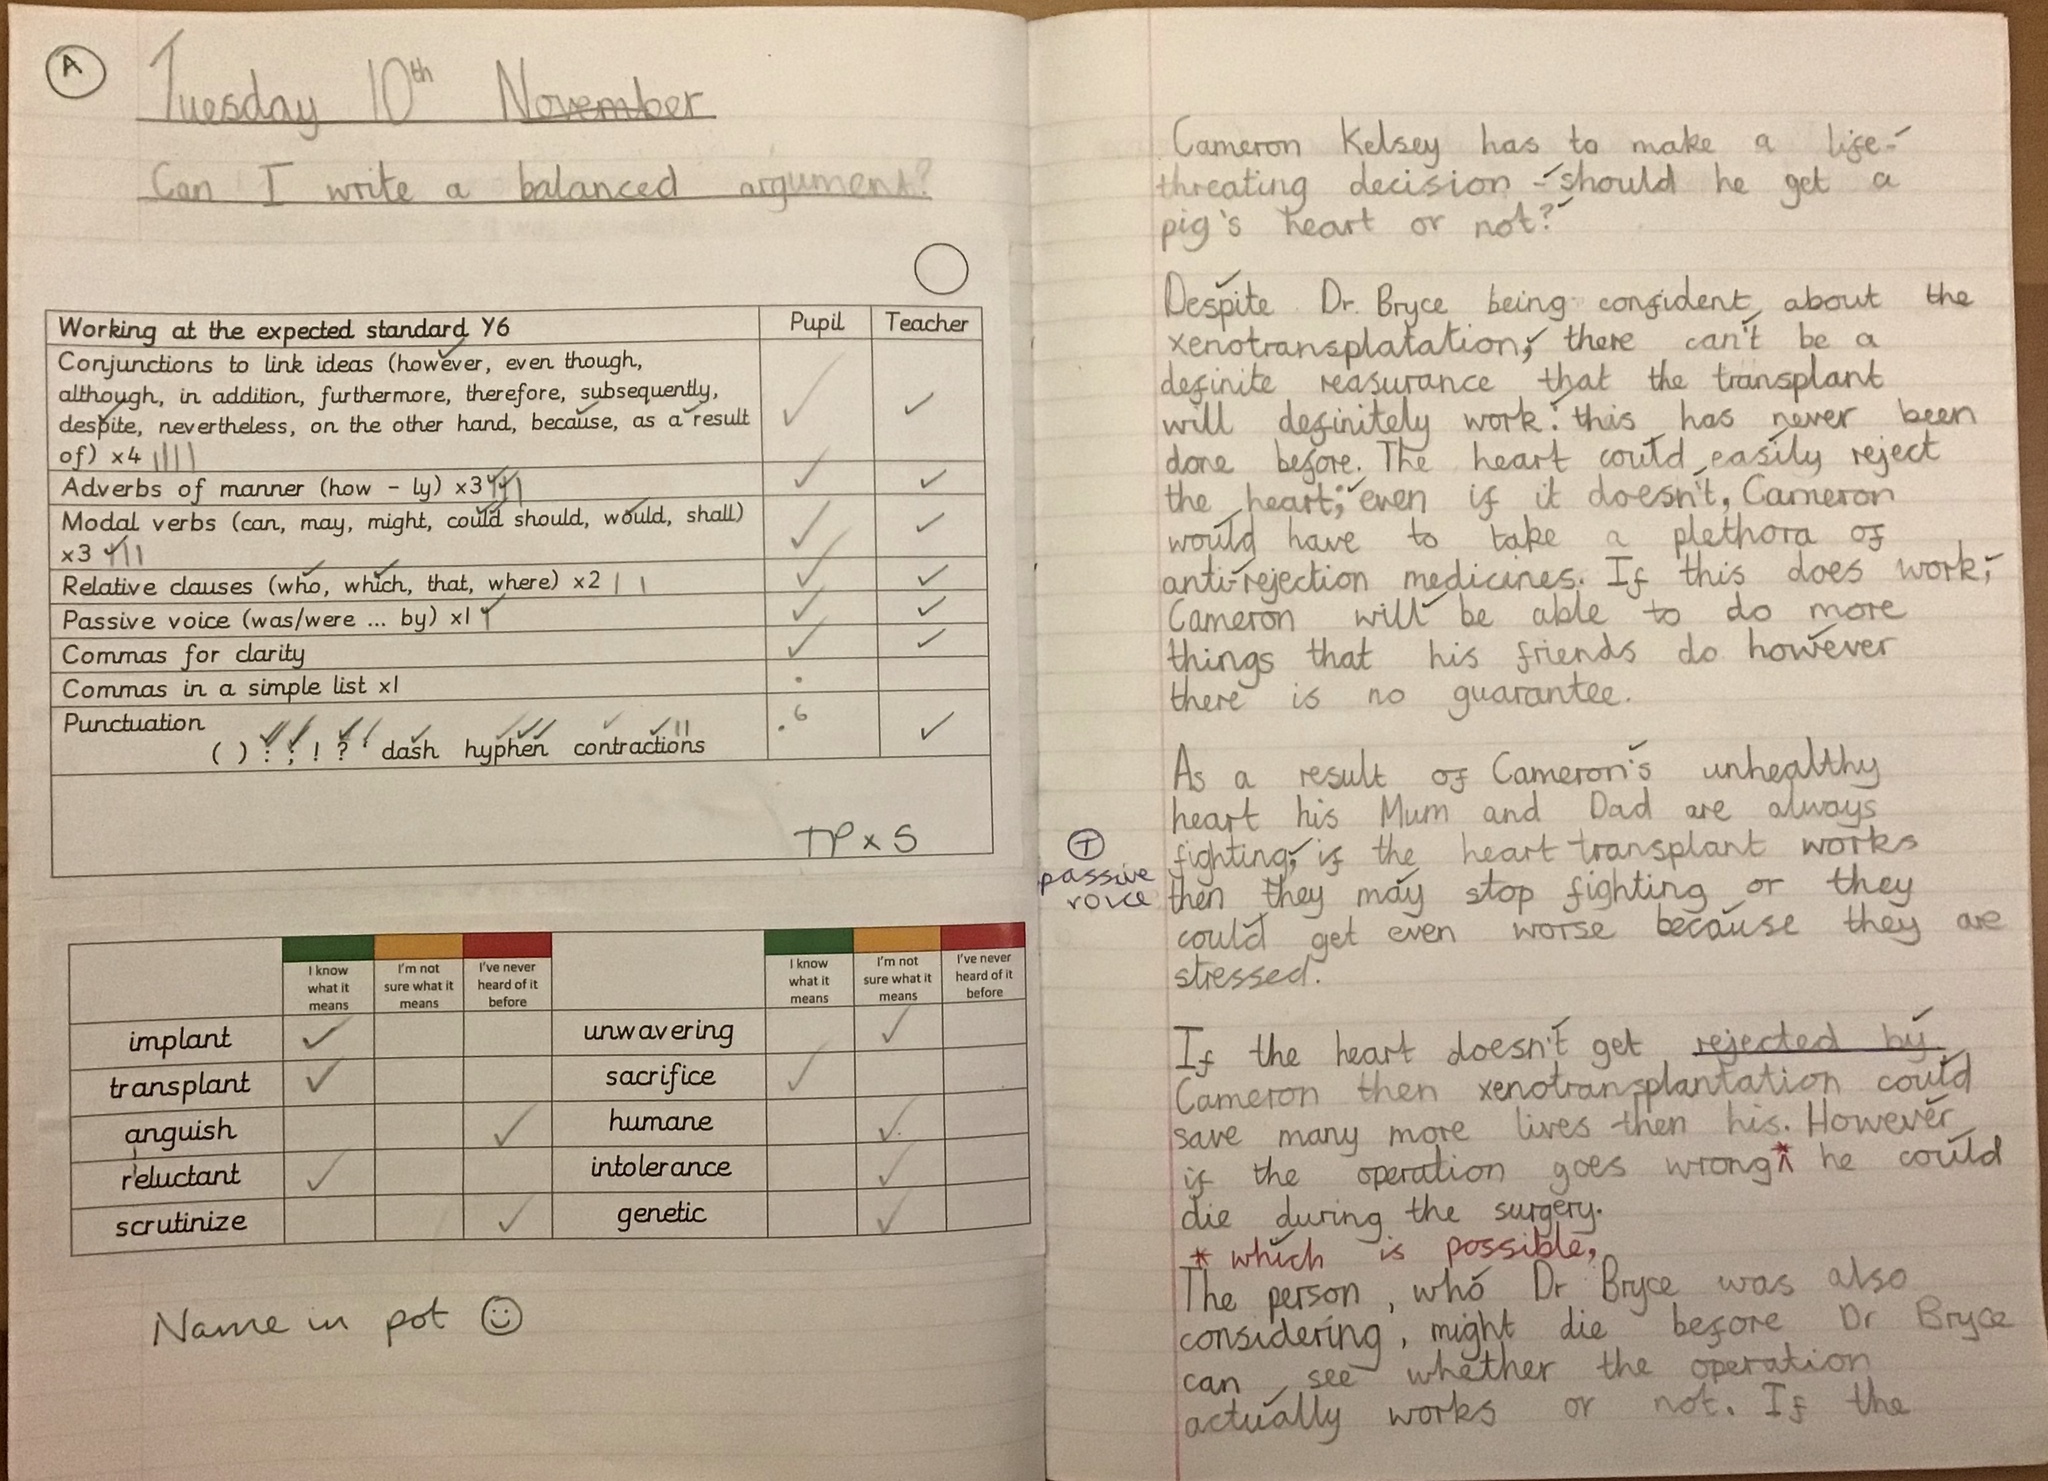 A
Tuesday 10th November
Can I write a balanced argument?
Working at the expected standard Y6 Pupil Teacher
Conjunctions to link ideas (however, even though,
although, in addition, furthermore, therefore, subsequently,
despite, nevertheless, on the other hand, because, as a result
of) x4
Adverbs of manner (how - ly) x3
Modal verbs (can, may, might, could should, would, shall)
x3
Relative clauses (who, which, that, where) x2
Passive voice (was/were ... by) x1
Commas for clarity
Commas in a simple list x1
Punctuation
( ) : ; ! ? ' dash hyphen contractions
6
TP x 5
I know what it means I'm not sure what it means I've never heard of it before I know what it means I'm not sure what it means I've never heard of it before
implant unwavering
transplant sacrifice
anguish humane
reluctant intolerance
scrutinize genetic
Name in pot
Cameron Kelsey has to make a life-
threating decision - should he get a
pig's heart or not?
Despite Dr. Bryce being confident about the
xenotransplatation, there can't be a
definite reasurance that the transplant
will definitely work: this has never been
done before. The heart could easily reject
the heart; even if it doesn't, Cameron
would have to take a plethora of
anti-rejection medicines. If this does work,
Cameron will be able to do more
things that his friends do however
there is no guarantee.
As a result of Cameron's unhealthy
heart his Mum and Dad are always
fighting; if the heart transplant works
then they may stop fighting or they
could get even worse because they are
stressed.
T
passive
voice
If the heart doesn't get rejected by
Cameron then xenotransplantation could
save many more lives then his. However
if the operation goes wrong* he could
die during the surgery.
* which is possible,
The person, who Dr Bryce was also
considering, might die before Dr Bryce
can see whether the operation
actually works or not. If the